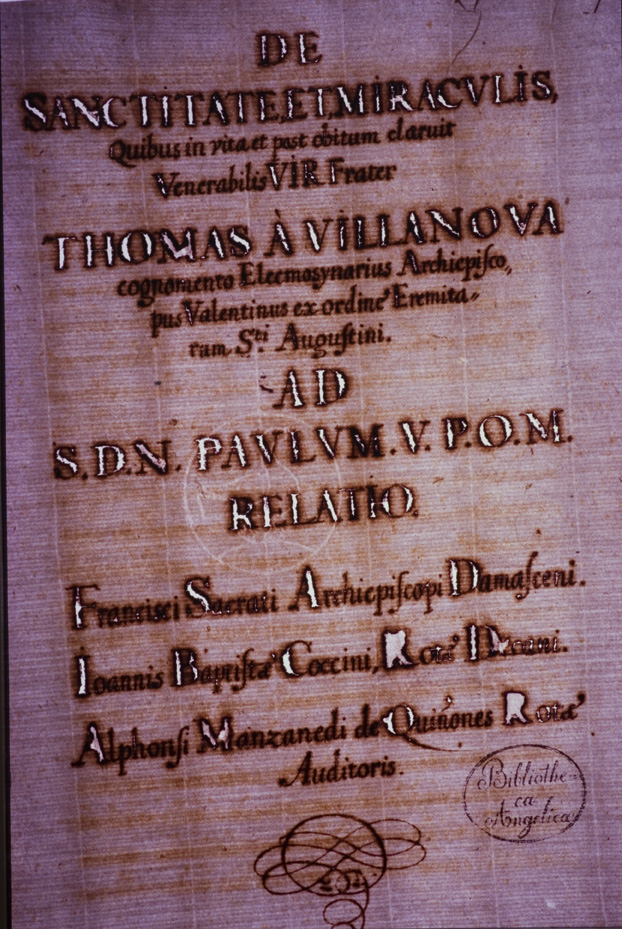 DE
SANCTITATE, ET, MIRACVLIS,
Quibus in vita et post obitum claruit
Venerabilis VIR Frater
THOMAS À VILLANOVA
cognomento Eleemosynarius Archiepisco„
pus Valentinus ex ordine Eremita„
rum S.ti Augustini.
AD
S.D.N. PAVLVM.V. P.O.M.
RELATIO.
Francisci Sacrati Archiepiscopi Damasceni.
Ioannis Baptistæ Coccini, Rotæ Decani.
Alphonsi Manzanedi de Quiñones Rotæ
Auditoris.
Bibliothe-
ca
Angelica